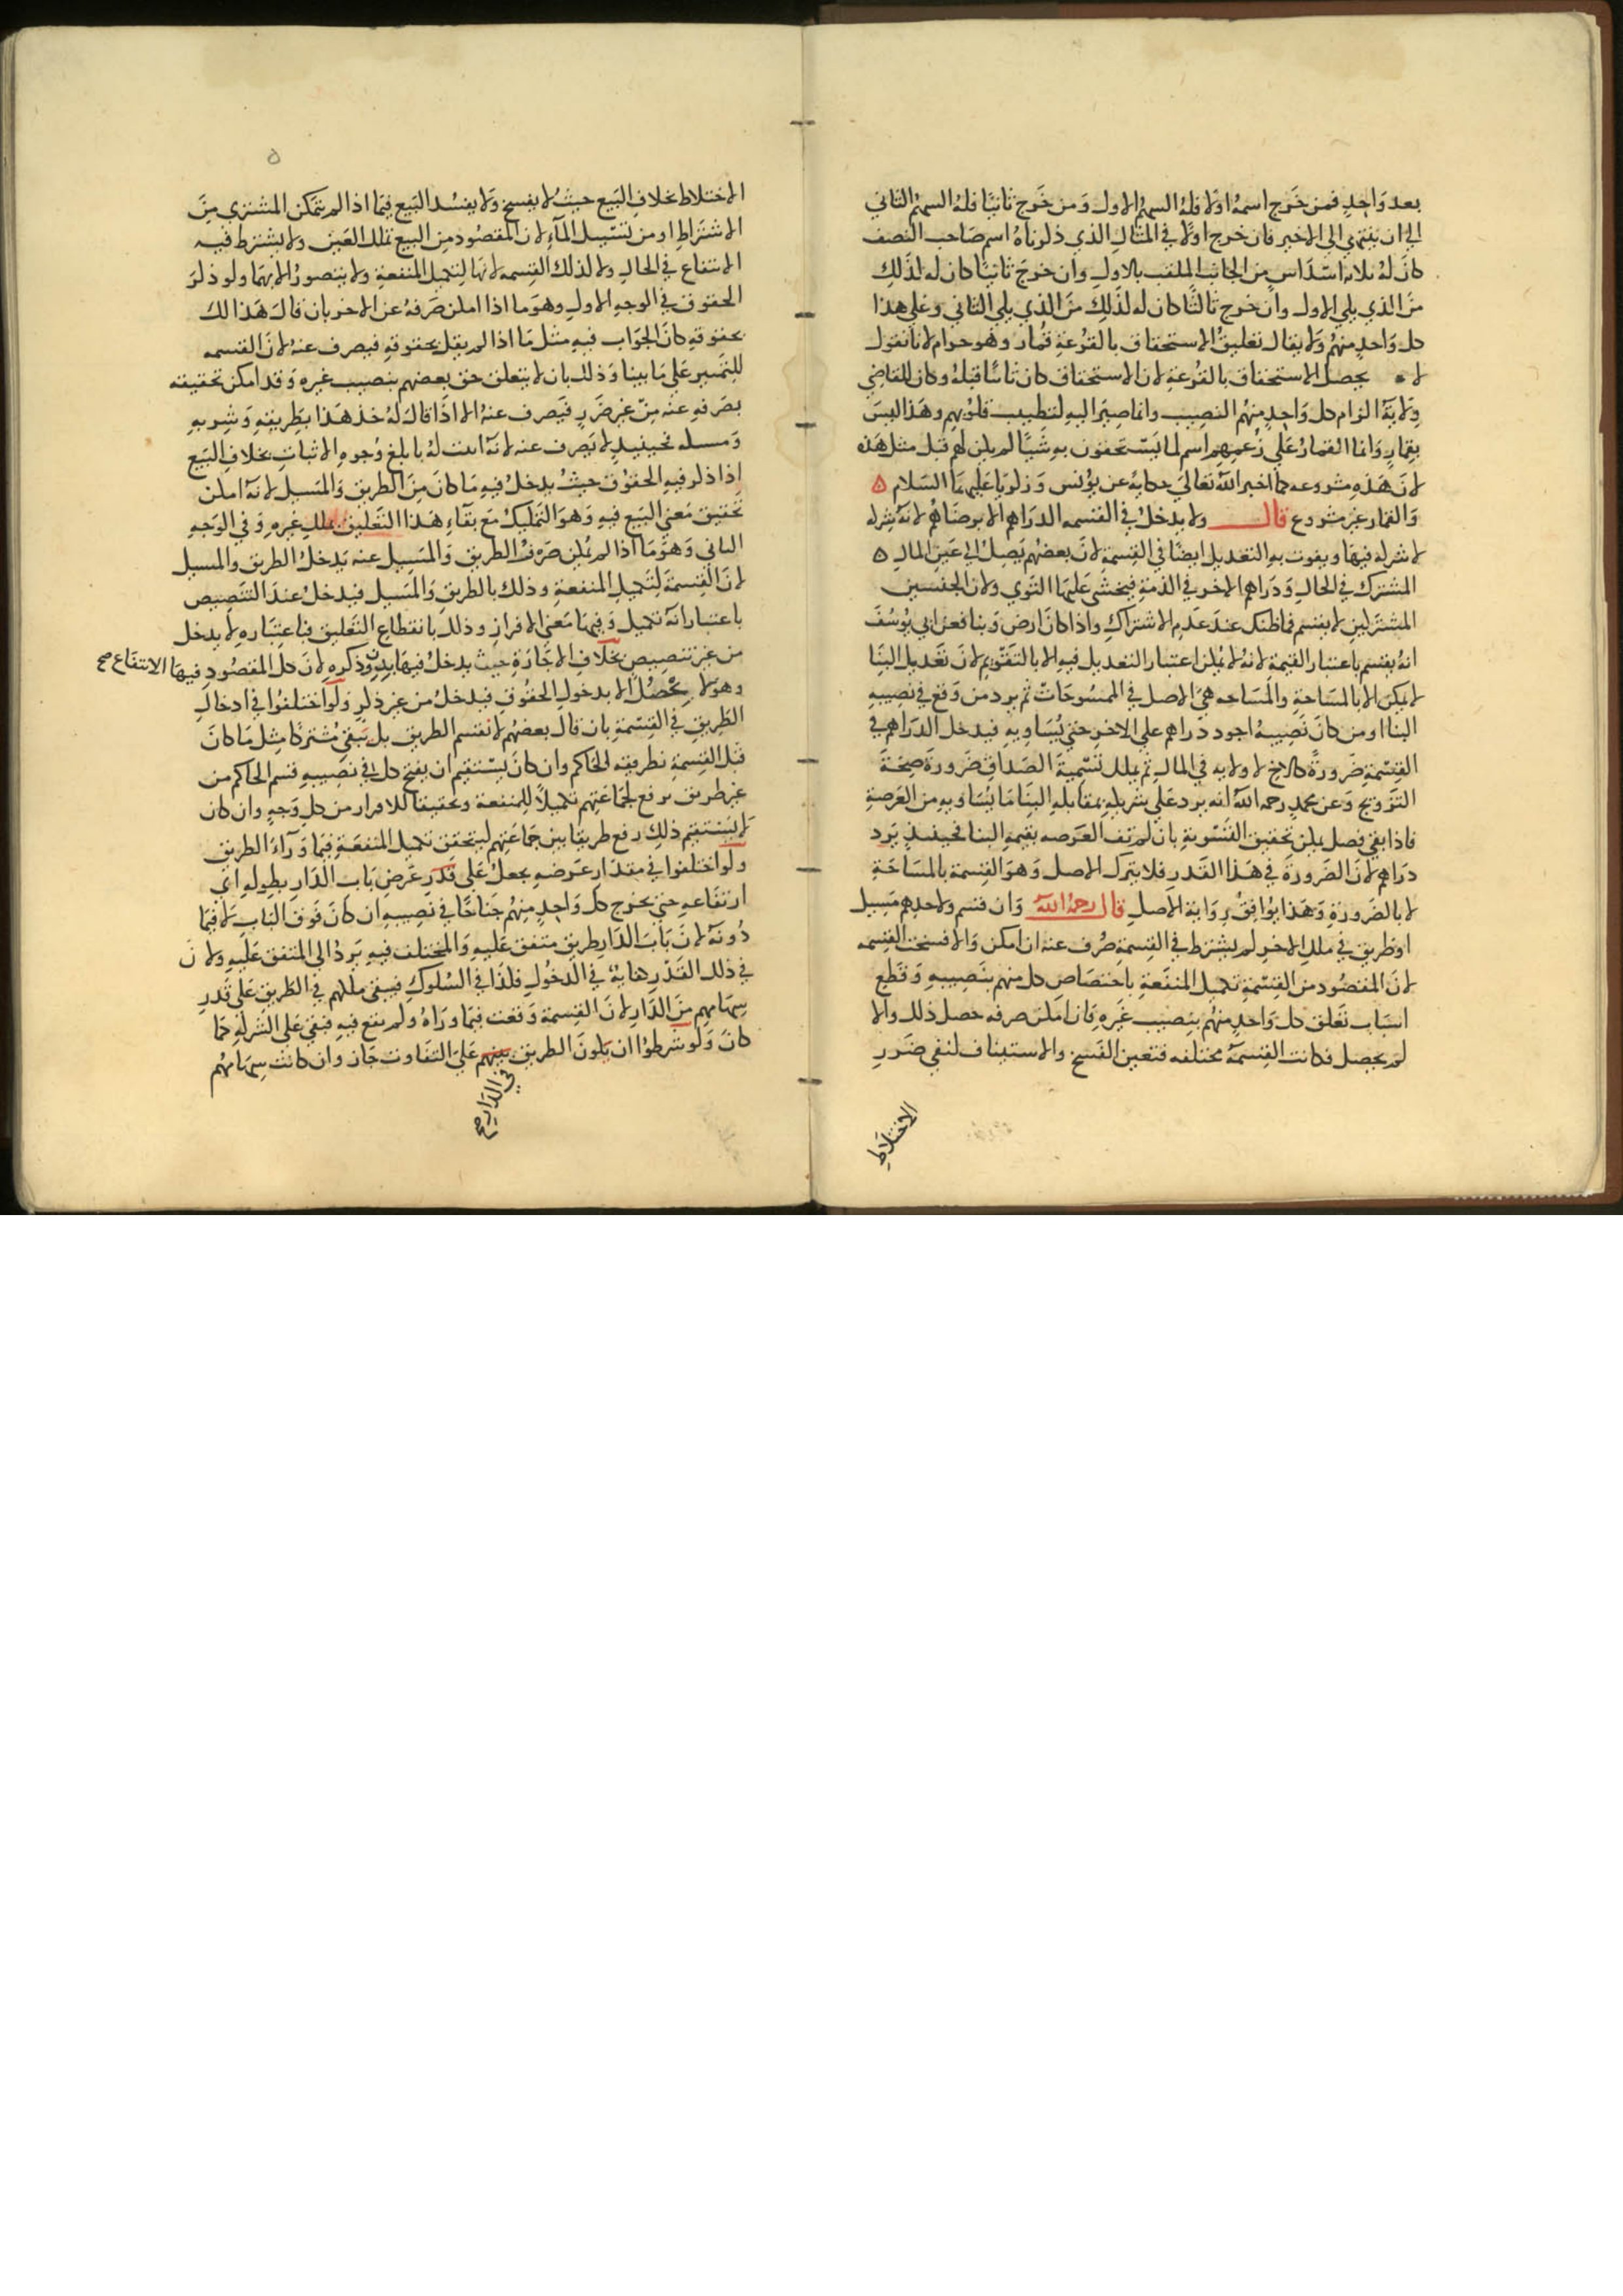 بعد واحد فمن خرج اسمه اولا فله السهم الاول ومن خرج ثانيا فله السهم الثاني
الى ان ينتهي الى الاخير فان خرج اولا في المثال الذي ذكرناه اسم صاحب النصف
كان له ثلاثة اسداس من الجانب الملقب بالاول وان خرج ثانيا كان له كذلك
من الذي يلي الاول وان خرج ثالثا كان له كذلك من الذي يلي الثاني وعلى هذا
كل واحد منهم ولا يقال تعليق الاستحقاق بالقرعة قمار وهو حرام لانا نقول
لا يحصل الاستحقاق بالقرعة لان الاستحقاق كان ثابتا قبله وكان للقاضي
ولاية الزام كل واحد منهم النصيب وانما صير اليه لتطييب قلوبهم وهذا ليس
بقمار وانما القمار على زعمهم اسم لما يستحقون به شيئا لم يكن لهم قبل مثل هذه
لان هذه مشروعه كما اخبر الله تعالى حكاية عن يونس وزكريا عليهما السلام ه
والقمار غير مشروع قال ولا يدخل في القسمه الدراهم الا برضاهم لانه شركه
لا شركه فيها ويفوت به التعديل ايضا في القسمة لان بعضهم يصل الى عين المال ه
المشترك في الحال ودراهم الاخر في الذمة فيخشى عليها التوى ولان الجنسين
المشتركين لا يقسم فما ظنك عند عدم الاشتراك واذا كان ارض وبنا فعن ابي يوسف
انه يقسم باعتبار القيمة لانه لا يمكن اعتبار التعديل فيه الا بالتقويم لان تعديل البنا
لا يمكن الا بالمساحة والمساحه هي الاصل في الممسوحات ثم يرد من وقع في نصيبه
البنا او من كان نصيبه اجود دراهم على الاخر حتى يساويه فيدخل الدراهم في
القسمة ضرورة كالاخ لا ولايه في المال ثم يملك تسمية الصداق ضرورة صحة
التزويج وعن محمد رحمه الله انه يرد على شريكه بمقابله البنا ما يساويه من العرصة
فاذا بقي فصل يمكن تحقيق التسوية بان لم تف العرصه بقيمه البنا فحينئذ يرد
دراهم لان الضرورة في هذا القدر فلا يترك الاصل وهو القسمة بالمساحة
الا بالضرورة وهذا يوافق رواية الاصل قال رحمه الله وان قسم ولاحدهم مسيل
او طريق في ملك الاخر لم يشترط في القسمة صرف عنه ان امكن والا فسخت القسمه
لان المقصود من القسمة تكميل المنفعة باختصاص كل منهم بنصيبه وقطع
اسباب تعلق كل واحد منهم بنصيب غيره فان امكن صرفه حصل ذلك والا
لم يحصل فكانت القسمة مختلفه فتعين الفسخ والاستيناف لنفي ضرر
الاختلاط
ه
الاختلاط بخلاف البيع حيث لا يفسخ ولا يفسد البيع فيما اذا لم يتمكن المشتري من
الاشتراط او من تسييل المآء لان المقصود من البيع تملك العين ولا يشترط فيه
الانتفاع في الحال ولا كذلك القسمه لانها لتكميل المنفعة ولا يتصور الا بهما ولو ذكر
الحقوق في الوجه الاول وهو ما اذا امكن صرفه عن الاخر بان قال هذا لك
بحقوقه كان الجواب فيه مثل ما اذا لم يقل بحقوقه فيصرف عنه لان القسمه
للتمييز على ما بينا وذلك بان لا يتعلق حق بعضهم بنصيب غيره وقد امكن تحقيقه
بصرفه عنه من غير ضرر فيصرف عنه الا اذا قال له خذ هذا بطريقه وشربه
ومسيله فحينئذ لا يصرف عنه لانه اثبت له بابلغ وجوه الاثبات بخلاف البيع
اذا ذكر فيه الحقوق حيث يدخل فيه ما كان من الطريق والمسيل لانه امكن
تحقيق معنى البيع فيه وهو التمليك مع بقاء هذا التعليق بملك غيره وفي الوجه
الثاني وهو ما اذا لم يمكن صرف الطريق والمسيل عنه يدخل الطريق والمسيل
لان القسمة لتكميل المنفعة وذلك بالطريق والمسيل فيدخل عند التنصيص
باعتبار انه تكميل وفيها معنى الافراز وذلك بانقطاع التعليق فباعتباره لا يدخل
من غير تنصيص بخلاف الاجارة حيث يدخل فيها بدون ذكره لان كل المقصود فيها الانتفاع صح
وهو لا يحصل الا بدخول الحقوق فيدخل من غير ذكر ولو اختلفوا في ادخال
الطريق في القسمة بان قال بعضهم لا نقسم الطريق بل نبقى مشتركا مثل ما كان
قبل القسمة نظر فيه الحاكم وان كان يستقيم ان يفتح كل في نصيبه قسم الحاكم من
غير طريق يرفع لجماعتهم تكميلا للمنفعة وتحقيقا للافراز من كل وجه وان كان
لا يستقيم ذلك رفع طريقا بين جماعتهم ليتحقق تكميل المنفعة فيما ورآء الطريق
ولو اختلفوا في مقدار عرضه يجعل على قدر عرض باب الدار بطوله اي
ارتفاعه حتى يخرج كل واحد منهم جناحا في نصيبه ان كان فوق الباب لا فيما
دونه لان باب الدار طريق متفق عليه والمختلف فيه يرد الى المتفق عليه ولان
في ذلك القدر كفاية في الدخول فكذا في السلوك فيبقى ملكهم في الطريق على قدر
سهامهم من الدار لان القسمة وقعت فيما وراه ولم يقع فيه فبقي على الشركة كما
كان ولو شرطوا ان يكون الطريق بينهم على التفاوت جاز وان كانت سهامهم
في الدار صح